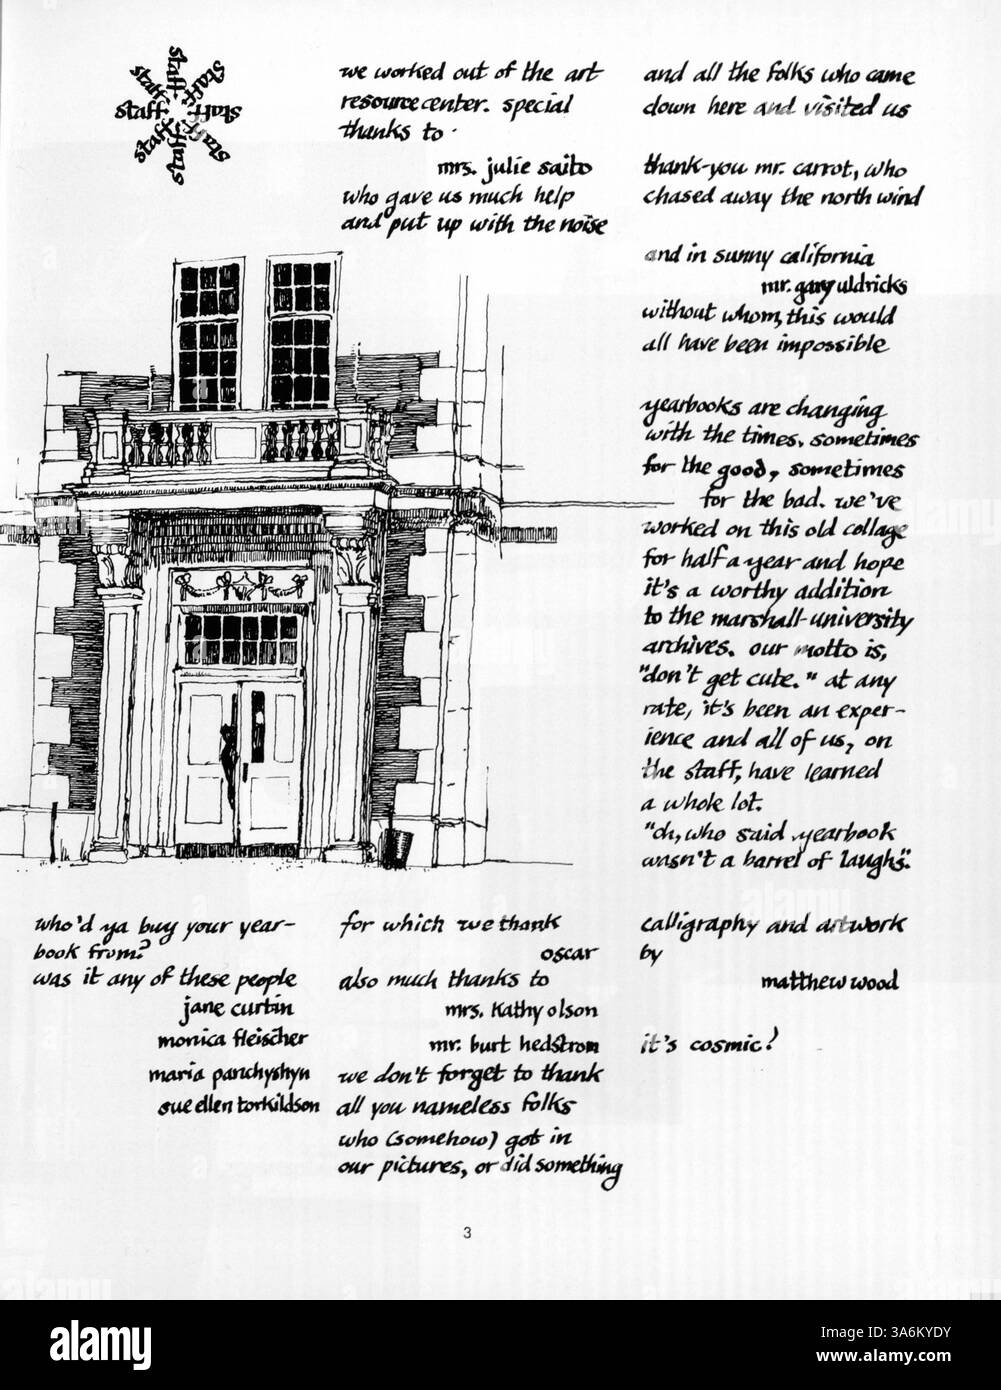 staff
staff
staff
staff
staff
staff
staff
staff
we worked out of the art
resource center. special
thanks to
mrs. julie saito
who gave us much help
and put up with the noise
and all the folks who came
down here and visited us
thank-you mr. carrot, who
chased away the north wind
and in sunny california
mr. gary uldricks
without whom, this would
all have been impossible
yearbooks are changing
with the times. sometimes
for the good, sometimes
for the bad. we've
worked on this old collage
for half a year and hope
it's a worthy addition
to the marshall-university
archives. our motto is,
"don't get cute." at any
rate, it's been an exper-
ience and all of us, on
the staff, have learned
a whole lot.
"oh, who said yearbook
wasn't a barrel of laughs".
who'd ya buy your year-
book from?
was it any of these people
jane curtin
monica fleischer
maria panchyshyn
sue ellen torkildson
for which we thank
oscar
also much thanks to
mrs. kathy olson
mr. burt hedstrom
we don't forget to thank
all you nameless folks
who (somehow) got in
our pictures, or did something
calligraphy and artwork
by
matthew wood
it's cosmic!
3
alamy
Image ID: 3A6KYDY
www.alamy.com